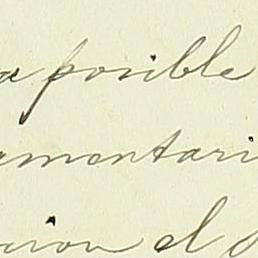 a posible
amentari
cion el d